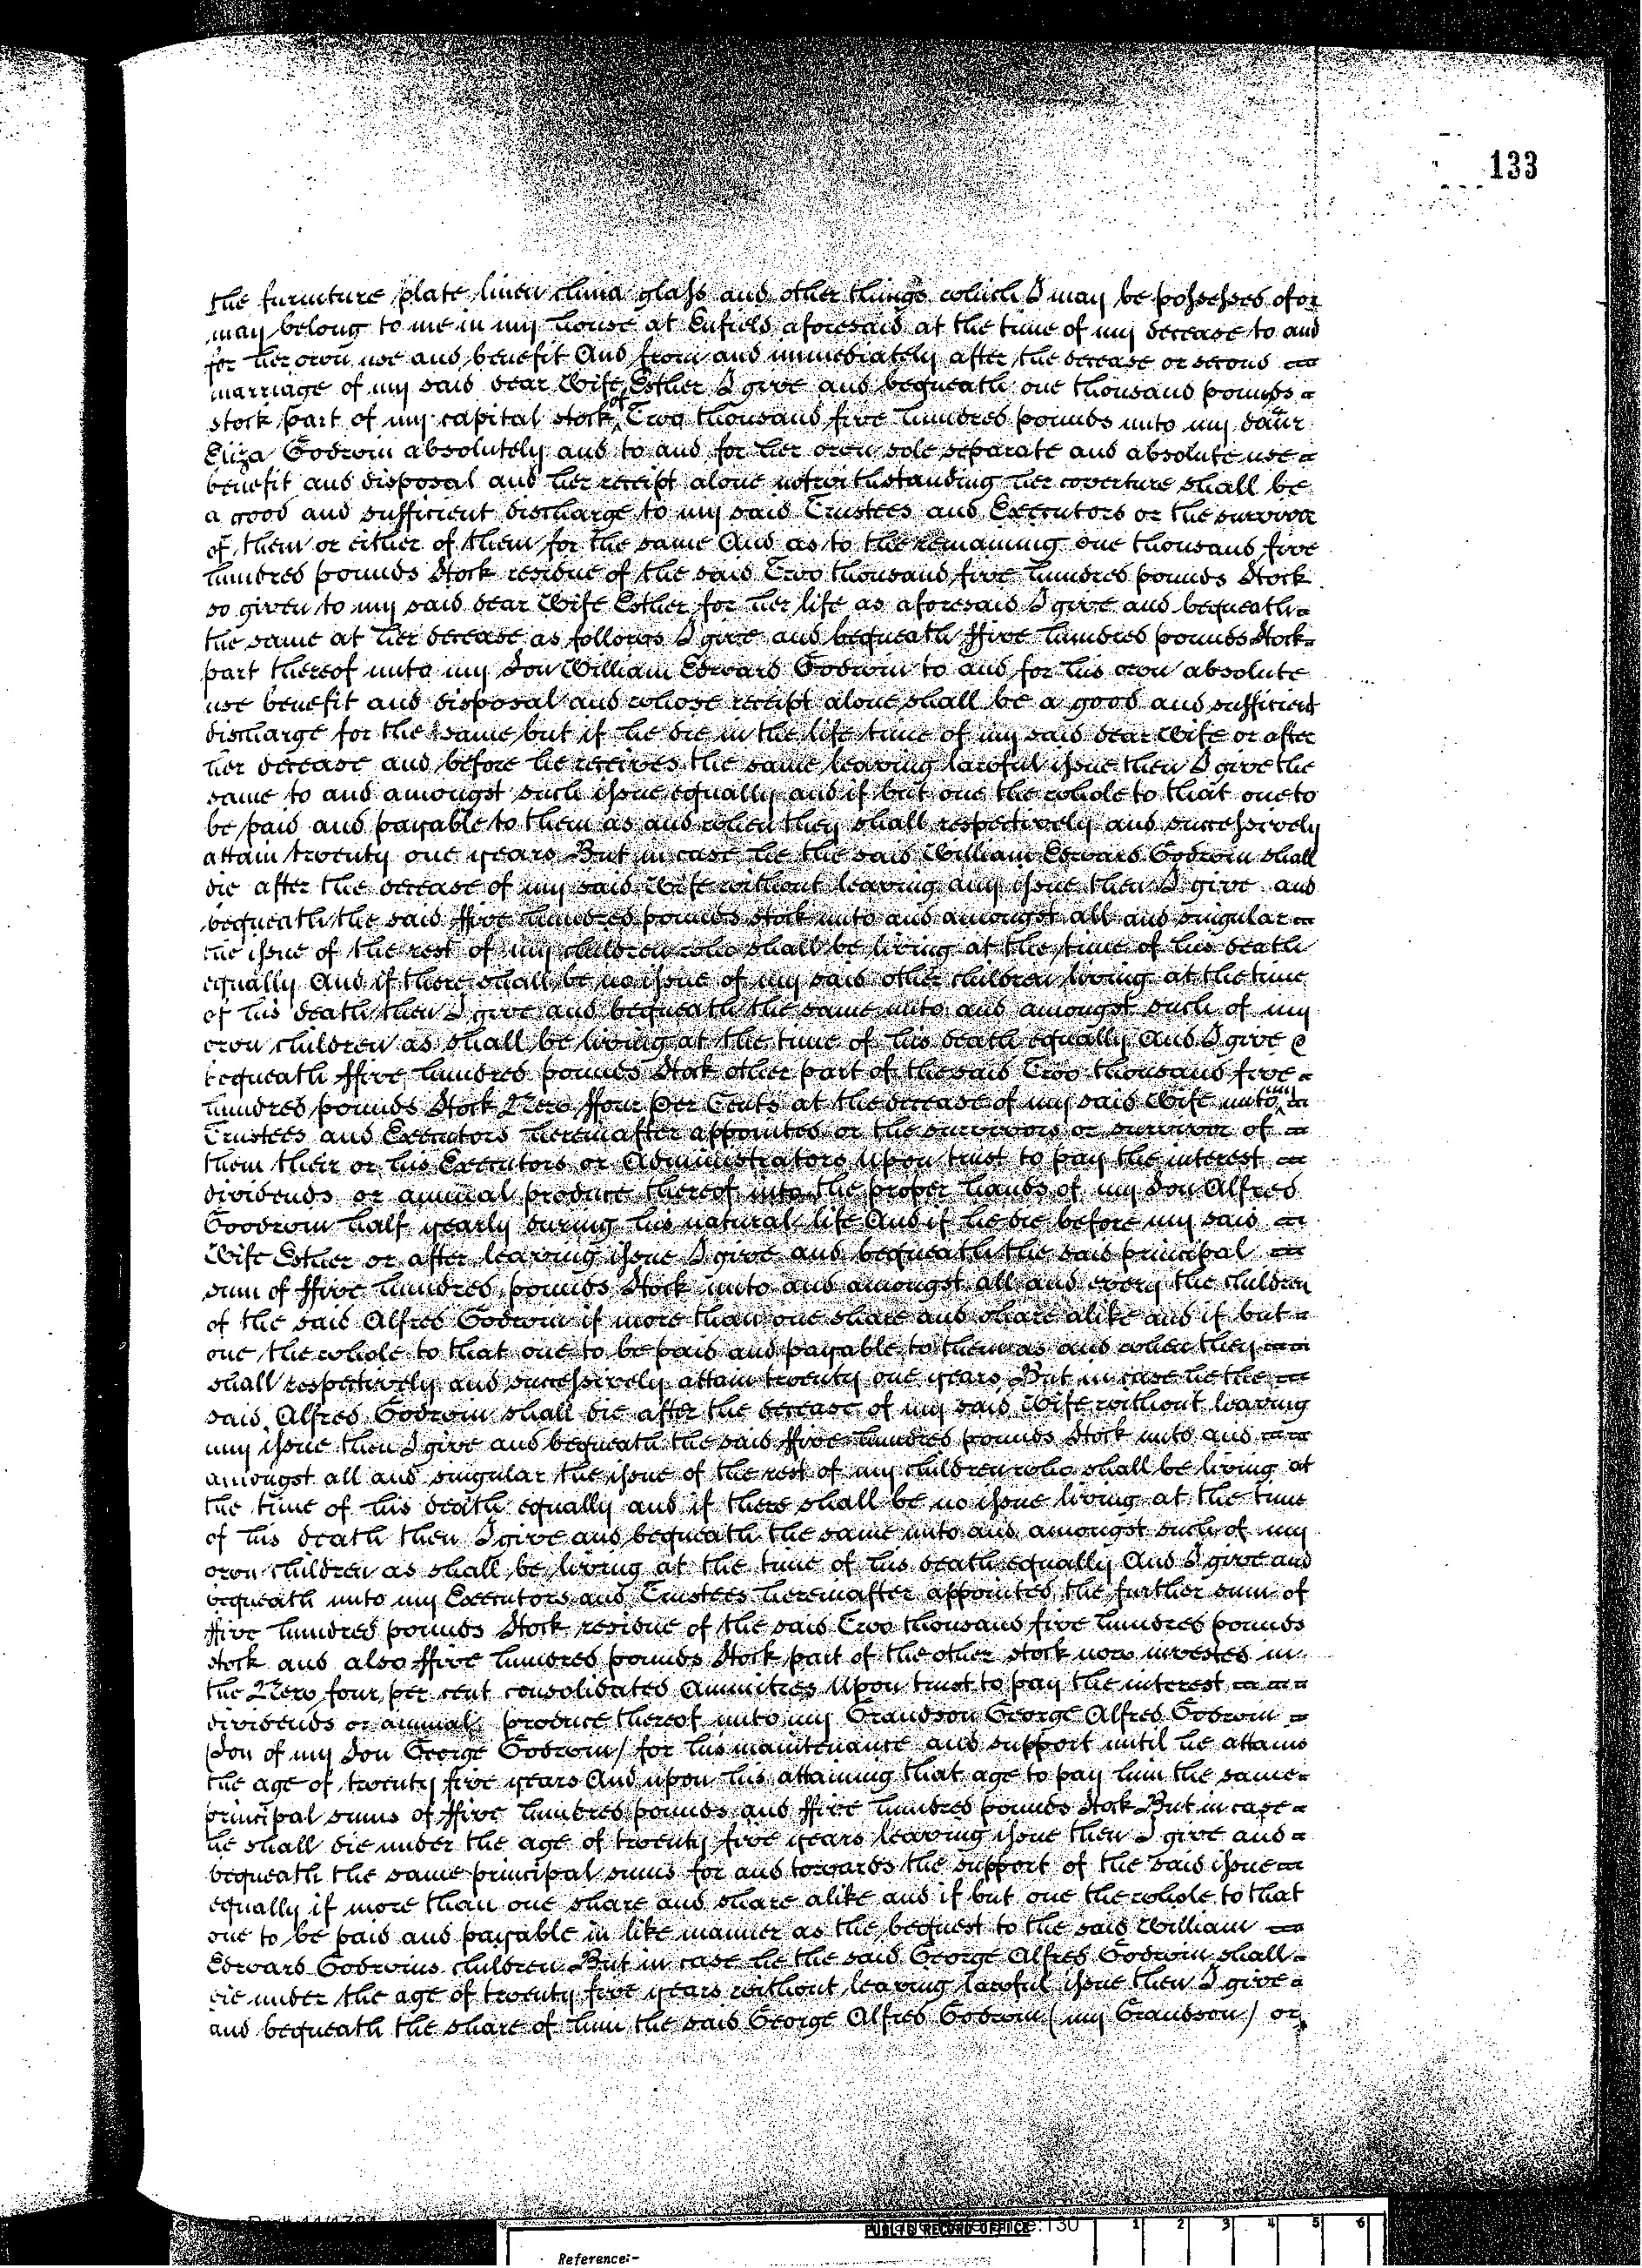 133
the furniture plate linen china glass and other things which I may be possessed of or
may belong to me in my house at Enfield aforesaid at the time of my decease to and
for her own use and benefit And from and immediately after the decease or second
marriage of my said dear Wife Esther I give and bequeath one thousand pounds
stock part of my capital stock of Two thousand five hundred pounds unto my daur
Eliza Godwin absolutely and to and for her own sole separate and absolute use
benefit and disposal and her receipt alone notwithstanding her coverture shall be
a good and sufficient discharge to my said Trustees and Executors or the survivor
of them or either of them for the same And as to the remaining one thousand five
hundred pounds Stock residue of the said Two thousand five hundred pounds Stock
so given to my said dear Wife Esther for her life as aforesaid I give and bequeath
the same at her decease as follows I give and bequeath ffive hundred pounds Stock
part thereof unto my Son William Edward Godwin to and for his own absolute
use benefit and disposal and whose receipt alone shall be a good and sufficient
discharge for the same but if he die in the life time of my said dear Wife or after
her decease and before he receives the same leaving lawful issue then I give the
same to and amongst such issue equally and if but one the whole to that one to
be paid and payable to them as and when they shall respectively and successively
attain twenty one years But in case he the said William Edward Godwin shall
die after the decease of my said Wife without leaving any issue then I give and
bequeath the said ffive hundred pounds stock unto and amongst all and singular
the issue of the rest of my children who shall be living at the time of his death
equally And if there shall be no issue of my said other children living at the time
of his death then I give and bequeath the same unto and amongst such of my
own children as shall be living at the time of his death equally And I give &
bequeath ffive hundred pounds Stock other part of the said Two thousand five
hundred pounds Stock New ffour Per Cents at the decease of my said Wife unto my
Trustees and Executors hereinafter appointed or the survivors or survivor of
them their or his Executors or Administrators Upon trust to pay the interest
dividends or annual produce thereof into the proper hands of my Son Alfred
Goodwin half yearly during his natural life And if he die before my said
Wife Esther or after leaving issue I give and bequeath the said principal
sum of ffive hundred pounds Stock unto and amongst all and every the children
of the said Alfred Godwin if more than one share and share alike and if but
one the whole to that one to be paid and payable to them as and when they
shall respectively and successively attain twenty one years But in case he the
said Alfred Godwin shall die after the decease of my said Wife without leaving
any issue then I give and bequeath the said ffive hundred pounds Stock unto and
amongst all and singular the issue of the rest of my children who shall be living at
the time of his death equally and if there shall be no issue living at the time
of his death then I give and bequeath the same unto and amongst such of my
own children as shall be living at the time of his death equally And I give and
bequeath unto my Executors and Trustees hereinafter appointed the further sum of
ffive hundred pounds Stock residue of the said Two thousand five hundred pounds
stock and also ffive hundred pounds Stock part of the other stock now invested in
the New four per cent consolidated Annuities Upon trust to pay the interest
dividends or annual produce thereof unto my Grandson George Alfred Godwin
(Son of my Son George Godwin) for his maintenance and support until he attains
the age of twenty five years And upon his attaining that age to pay him the same
principal sums of ffive hundred pounds and ffive hundred pounds Stock But in case
he shall die under the age of twenty five years leaving issue then I give and
bequeath the same principal sums for and towards the support of the said issue
equally if more than one share and share alike and if but one the whole to that
one to be paid and payable in like manner as the bequest to the said William
Edward Godwins children But in case he the said George Alfred Godwin shall
die under the age of twenty five years without leaving lawful issue then I give
and bequeath the share of him the said George Alfred Godwin (my Grandson) or
PUBLIC RECORD OFFICE 1 2 3 4 5 6
Reference:-